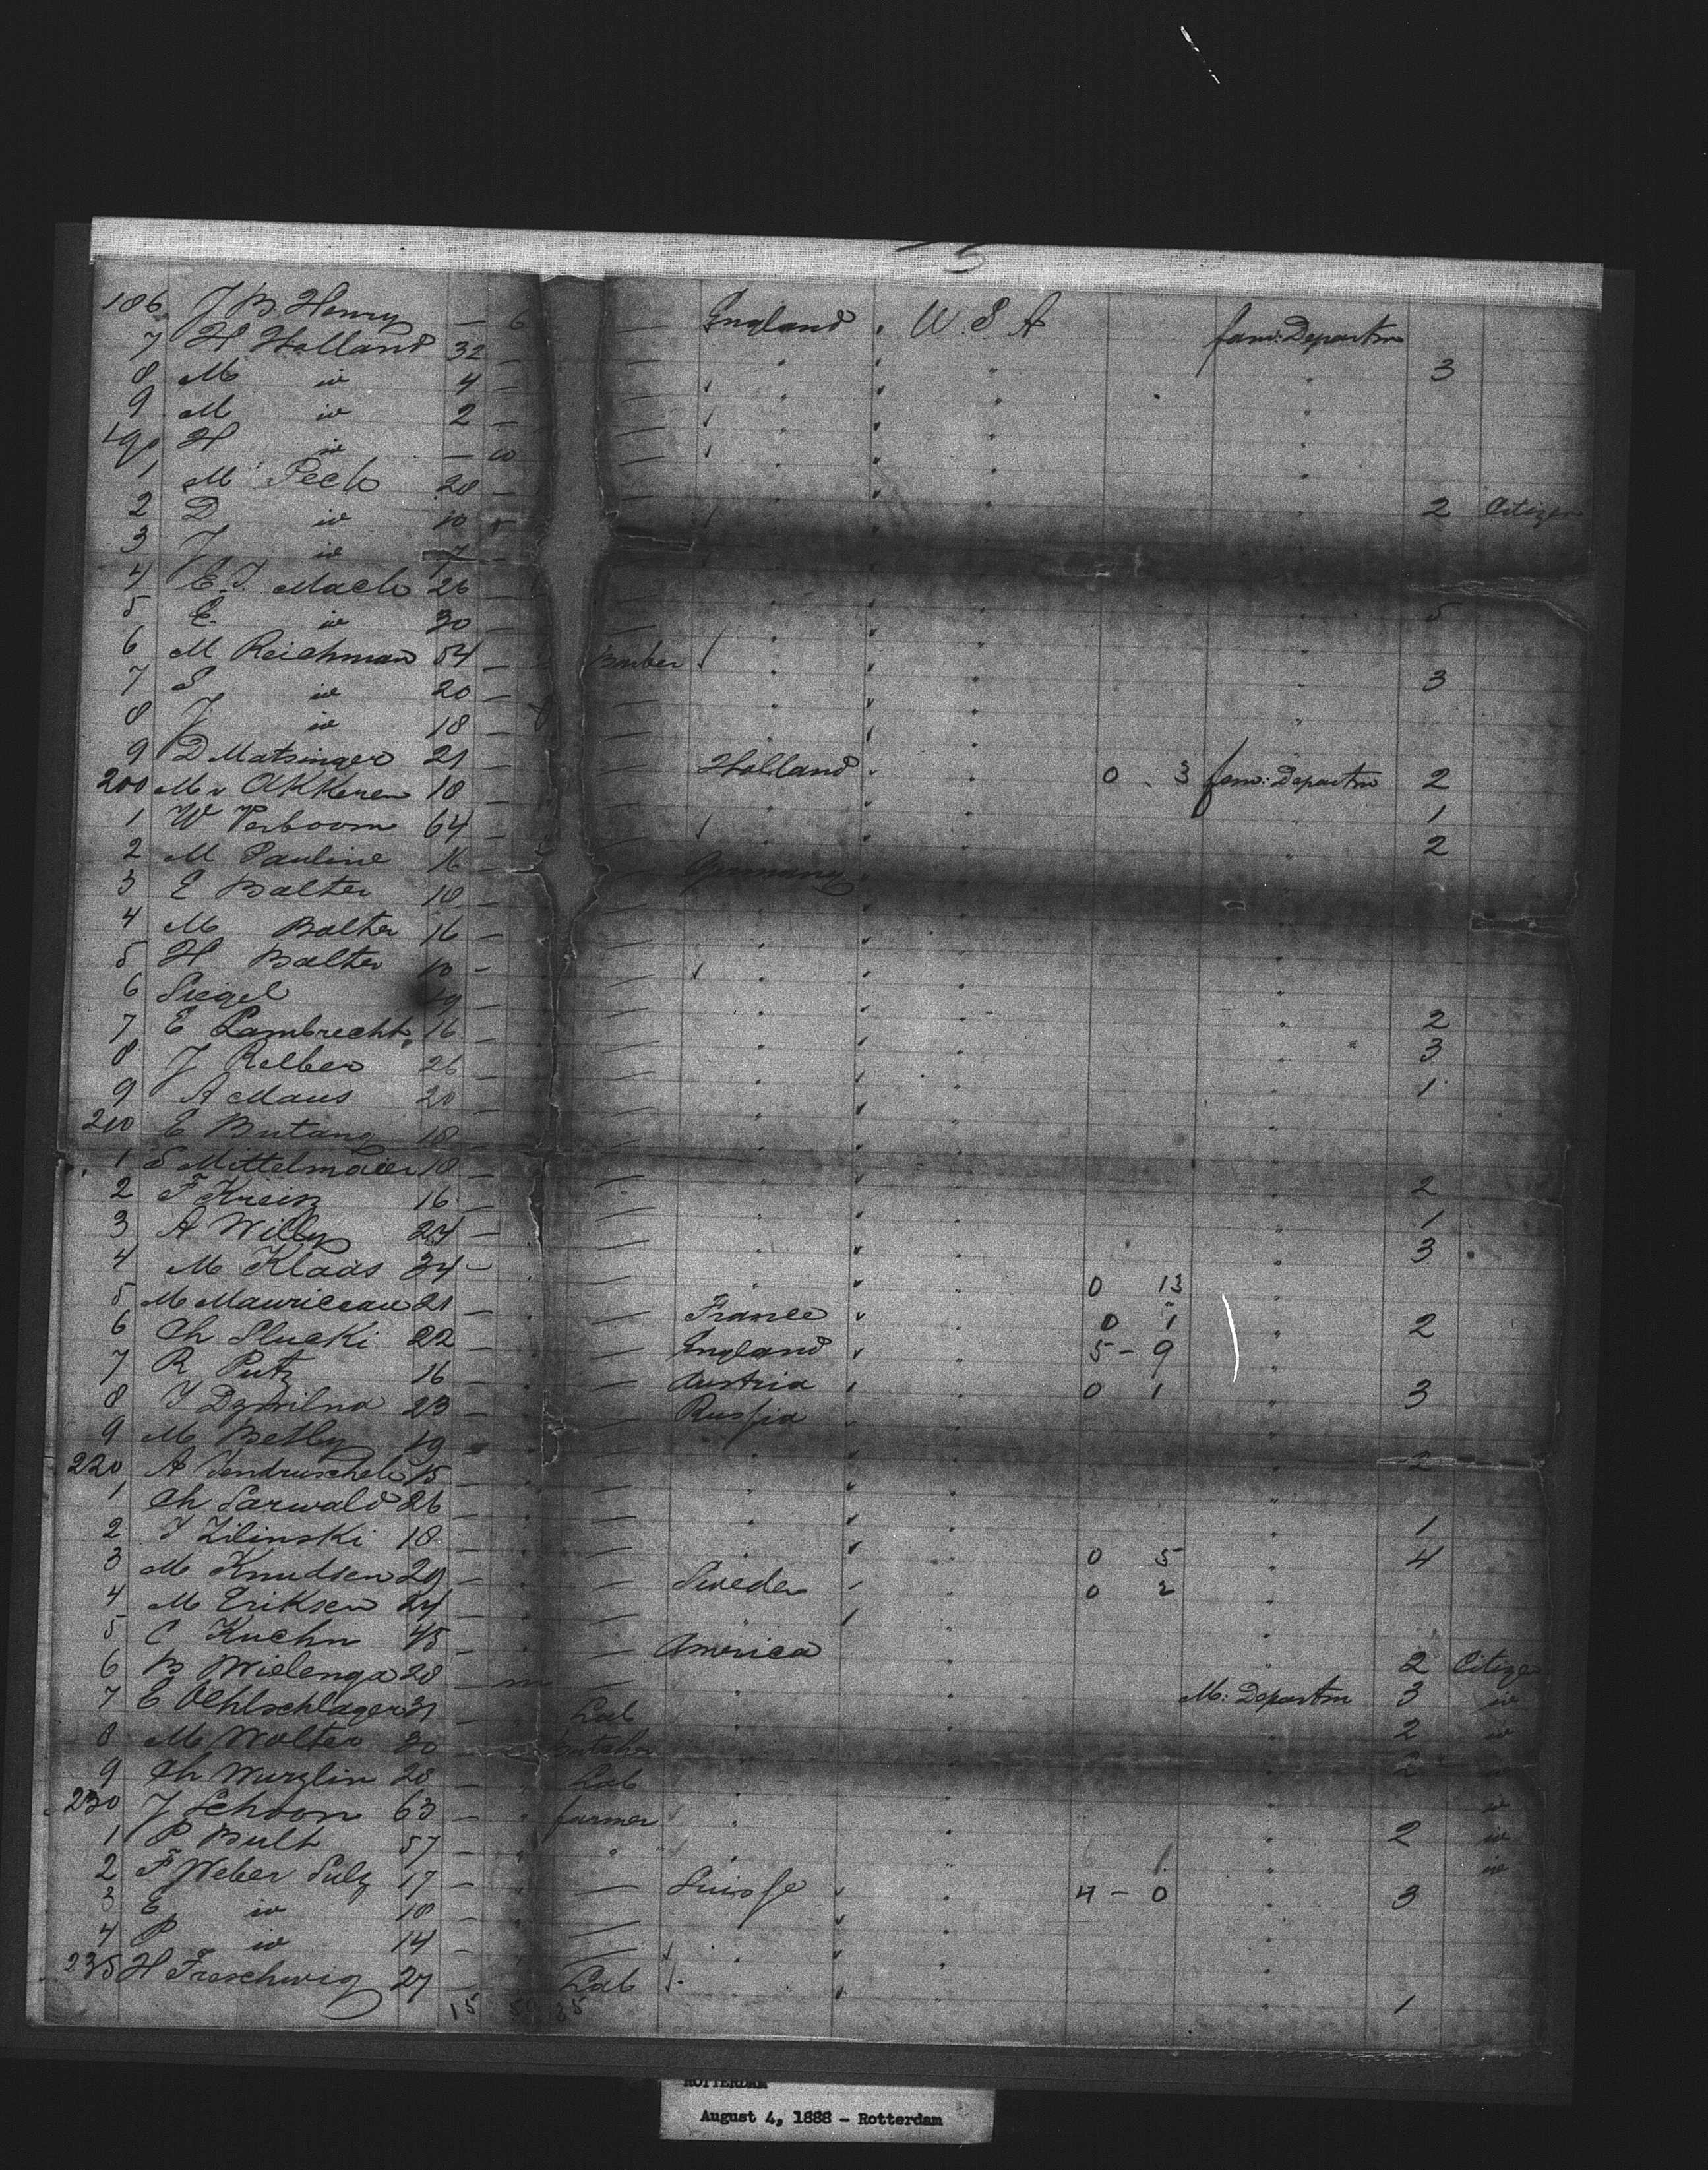 186 J B Henry — 6 — England U.S.A fam: Departm
7 H Holland 32 — 3
8 M id 4 —
9 M id 2 —
190 H id — 10 —
1 M Peck 28 — 2 Citizen
2 D id 10
3 J id 7 —
4 E. J. Mack 26 — 5
5 E id 30 —
6 M Reichman 54 — 3
7 S id 20 —
8 J id 18 —
9 D Matsinger 21 — Holland 0 - 3 fem: Departm 2
200 M v Akkeren 18 — 1
1 W Verboom 64 — 2
2 M Pauline 16 — Germany
3 E Balter 18 —
4 M Balter 16 —
5 H Balter 10 —
6 Siegel 19 — 2
7 E Lambrecht 16 — 3
8 J Relber 26 — 1
9 A Maus 20 —
210 E Butang 18 —
1 S Mittelmaier 18 — 2
2 F Kreisz 16 — 1
3 A Willy 24 — 3
4 M Klaas 34 — 0 13
5 M Mauriceau 21 — France 0 1 2
6 Ch Slucki 22 — England 5 - 9
7 R Putz 16 — Austria 0 1 3
8 J 23 — Russia
9 M Betly 19 — 2
220 A 15 —
1 Ch Sarwald 26 — 1
2 J Zilinski 18 — 0 5 4
3 M Knudsen 29 — Sweden 0 2
4 M Eriksen 24 —
5 C Kuehn 45 — America 2 Citizen
6 B Wielenga 28 — m — M: Departm 3 id
7 E Oehlschlager 31 — Lab 2 id
8 M Wolter 30 — Butcher 2
9 Ch Wurzlin 28 — Lab id
230 J Schoon 63 — farmer 2 id
1 P Bult 57 — id
2 F Weber Sulz 17 — Suisse 4 - 0 3
3 E id 18 —
4 P id 14 —
235 H Freschwig 27 — Lab 1
15 85
ROTTERDAM
August 4, 1888 - Rotterdam